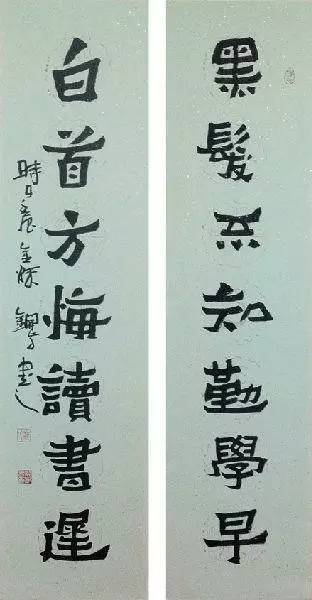 黑髮不知勤學早
白首方悔讀書遲
時丁亥金秋 書之